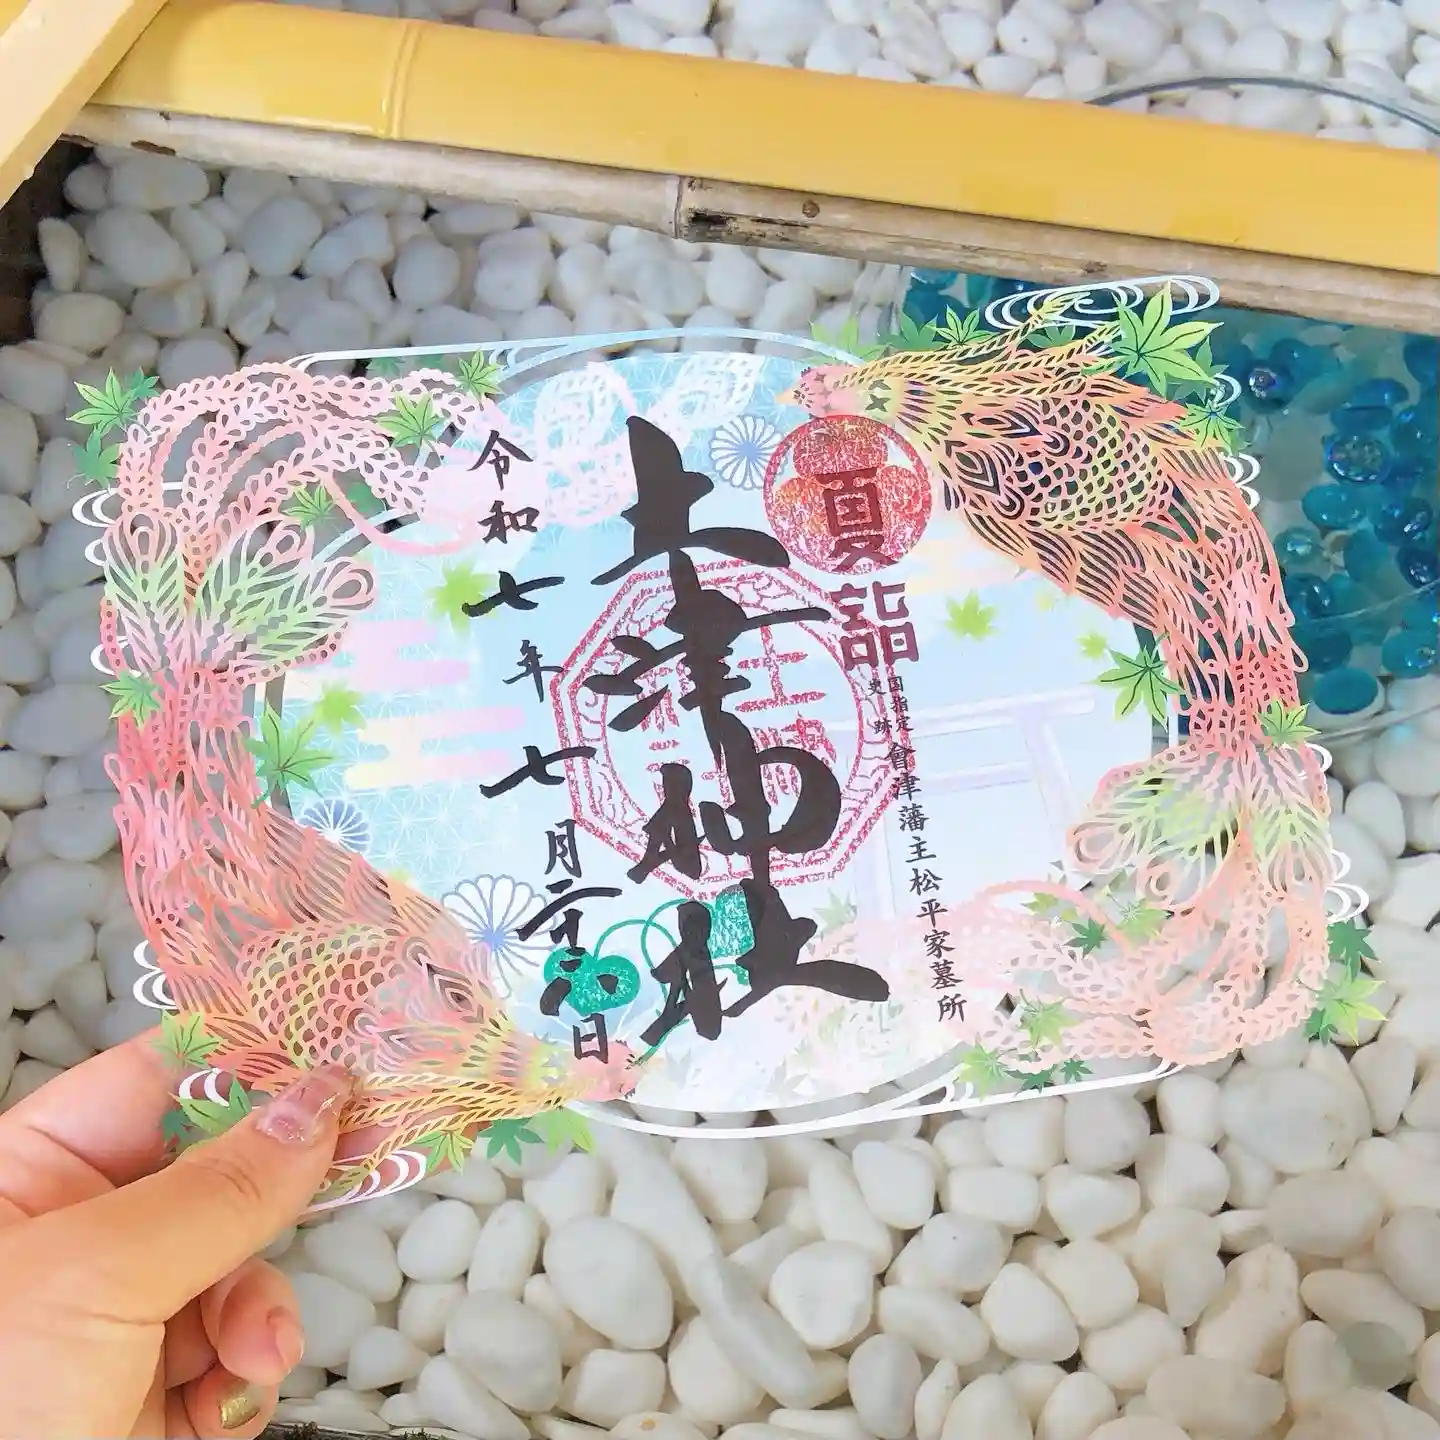 夏
詣
国指定
史跡
會津藩主松平家墓所
土津神社
令和七年七月二十六日